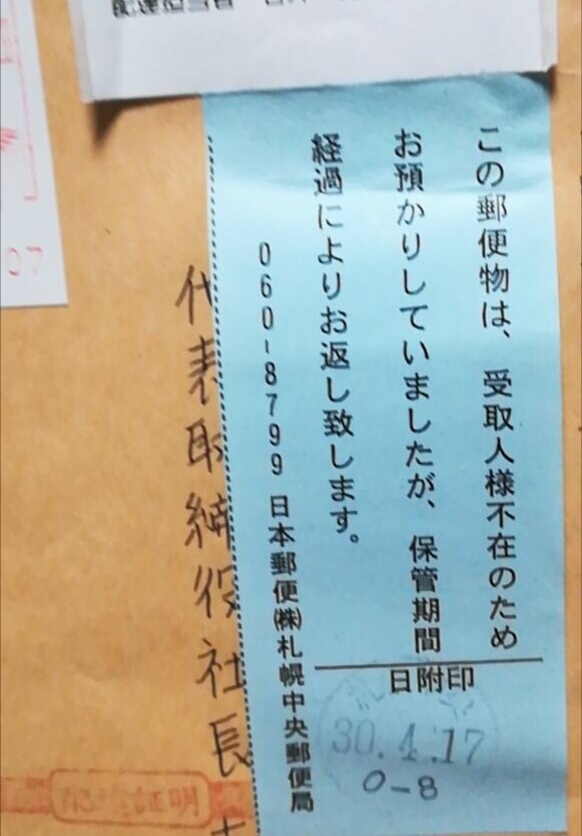 配達担当者
この郵便物は、受取人様不在のため
お預かりしていましたが、保管期間
経過によりお返し致します。
060-8799 日本郵便㈱札幌中央郵便局
日附印
30.4.17
0-8
代表取締役社長
証明
07